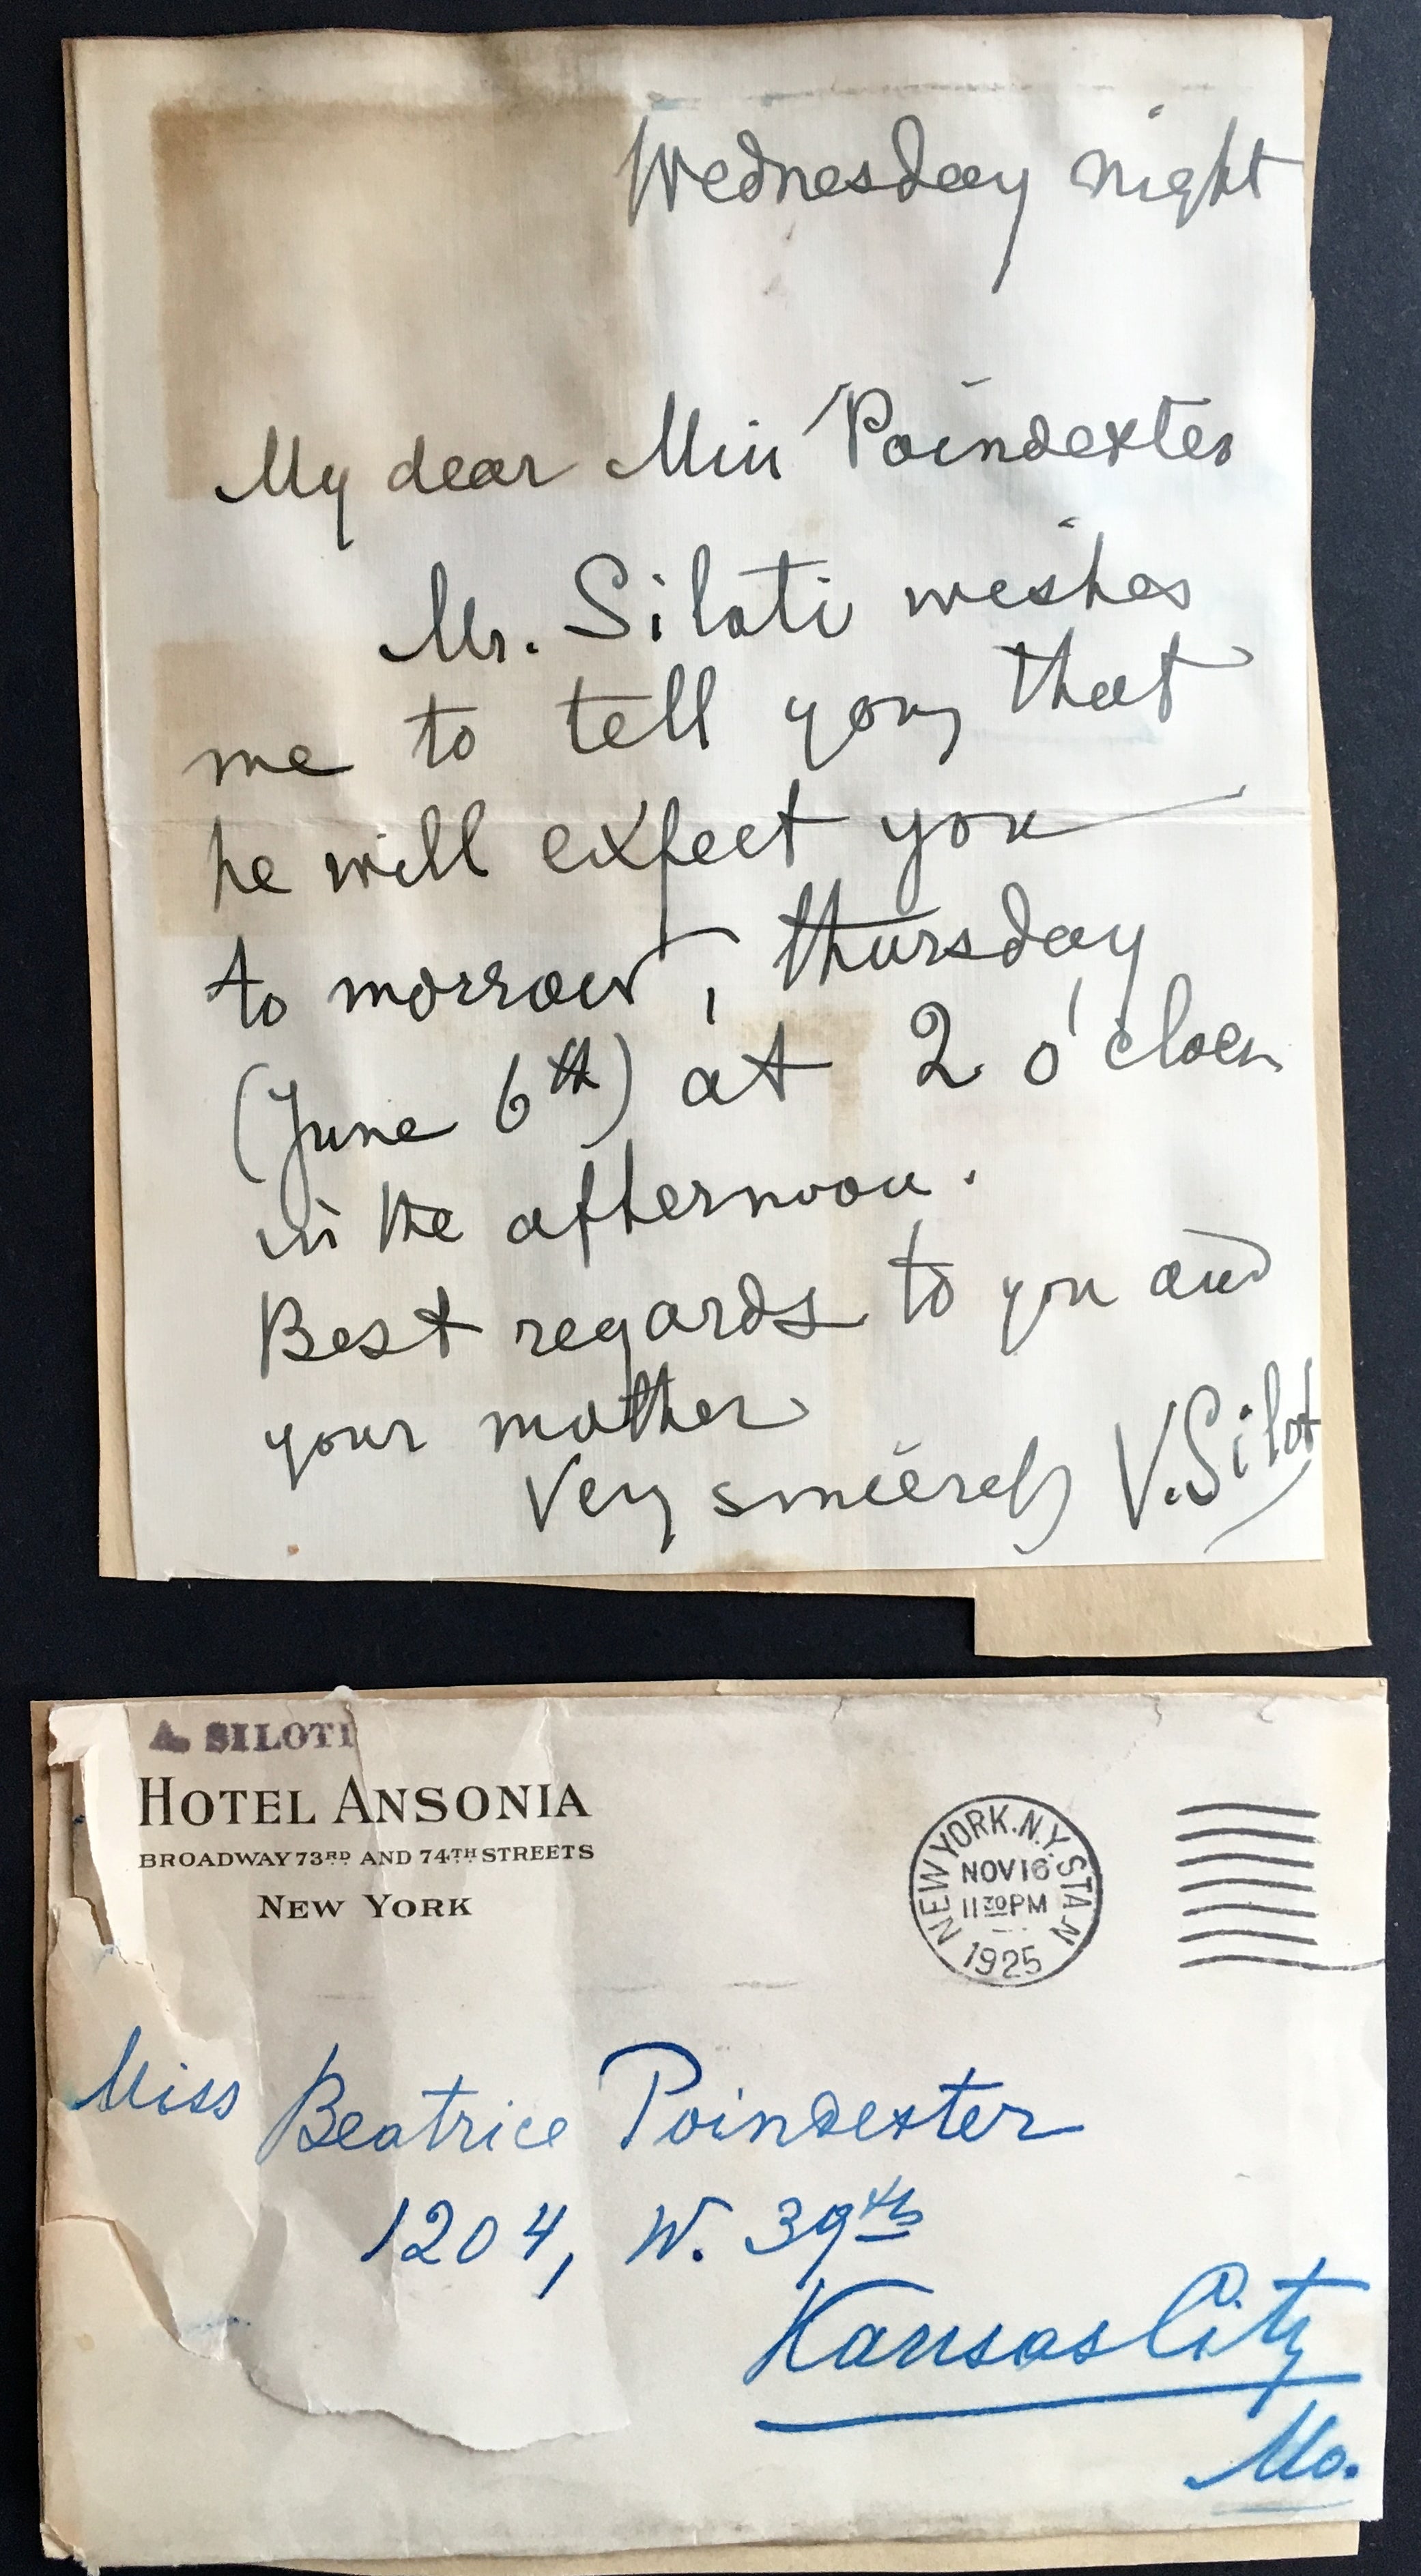 Wednesday night
My dear Miss Poindexter
Mr. Siloti wishes
me to tell you, that
he will expect you
to morrow, thursday
(June 6th) at 2 o'clock
in the afternoon.
Best regards to you and
your mother
Very sincerely V. Siloti
A. SILOTI
HOTEL ANSONIA
BROADWAY 73RD AND 74TH STREETS
NEW YORK
NEW YORK, N.Y. STA. N
NOV 16
11 30 PM
1925
Miss Beatrice Poindexter
1204, W. 39th
Kansas City
Mo.